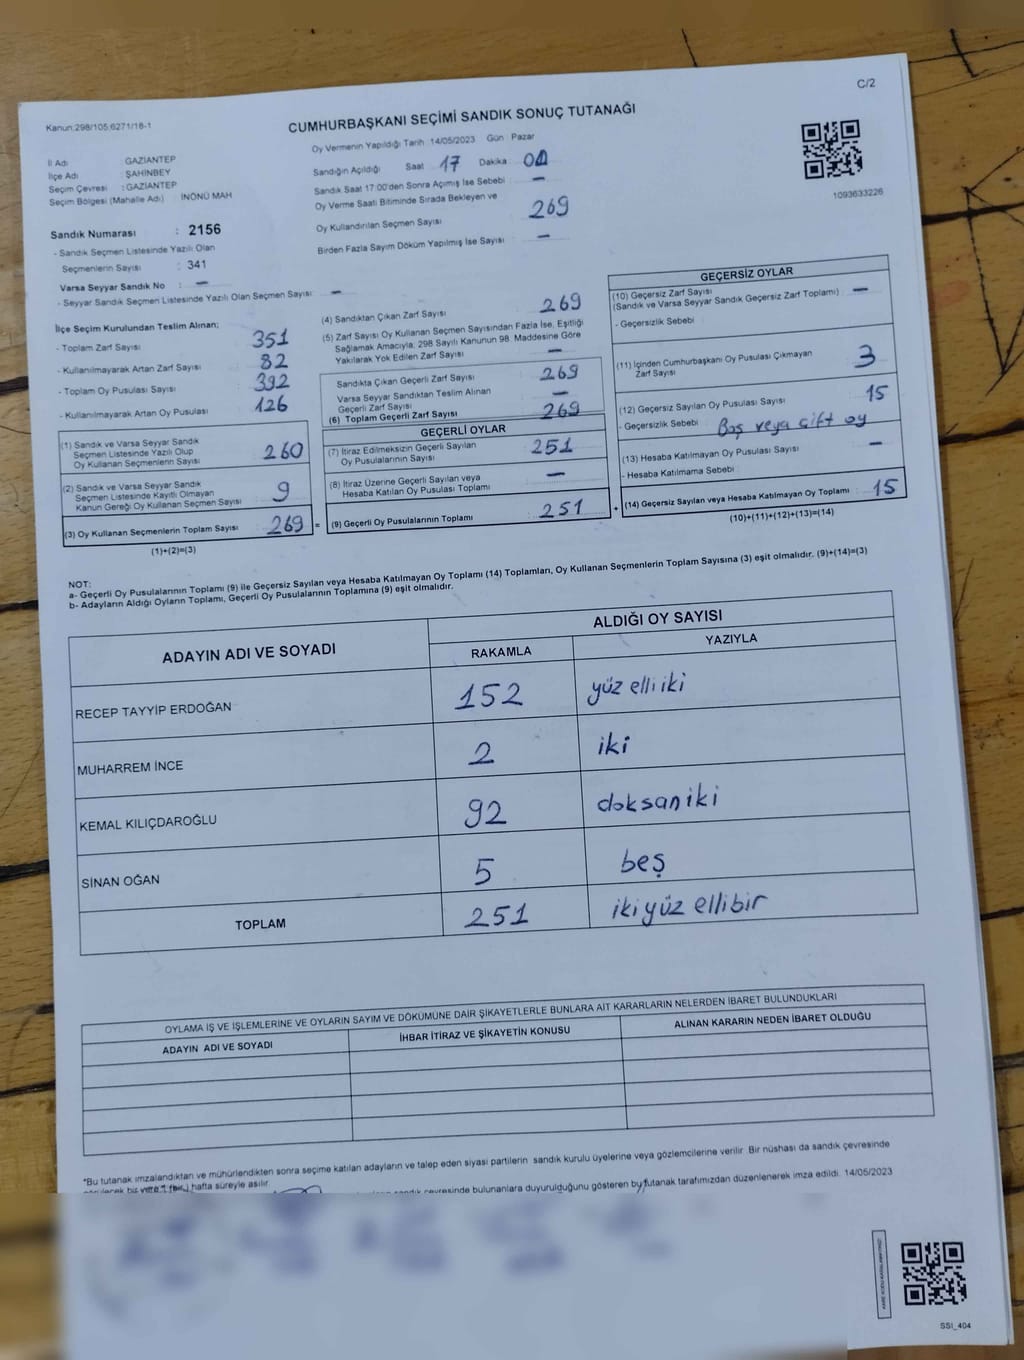 C/2
Kanun:298/105;6271/18-1
CUMHURBAŞKANI SEÇİMİ SANDIK SONUÇ TUTANAĞI
Oy Vermenin Yapıldığı Tarih :14/05/2023 Gün : Pazar
İl Adı : GAZİANTEP
İlçe Adı : ŞAHİNBEY
Seçim Çevresi : GAZİANTEP
Seçim Bölgesi (Mahalle Adı) : İNÖNÜ MAH
Sandık Numarası : 2156
- Sandık Seçmen Listesinde Yazılı Olan
Seçmenlerin Sayısı : 341
Varsa Seyyar Sandık No : –
- Seyyar Sandık Seçmen Listesinde Yazılı Olan Seçmen Sayısı: –
Sandığın Açıldığı Saat 17 Dakika
Sandık Saat 17:00'den Sonra Açımış İse Sebebi –
Oy Verme Saati Bitiminde Sırada Bekleyen ve
Oy Kullandırılan Seçmen Sayısı 269
Birden Fazla Sayım Döküm Yapılmış İse Sayısı –
1093633226
İlçe Seçim Kurulundan Teslim Alınan;
- Toplam Zarf Sayısı 351
- Kullanılmayarak Artan Zarf Sayısı 82
- Toplam Oy Pusulası Sayısı 392
- Kullanılmayarak Artan Oy Pusulası 126
(1) Sandık ve Varsa Seyyar Sandık
Seçmen Listesinde Yazılı Olup
Oy Kullanan Seçmenlerin Sayısı 260
(2) Sandık ve Varsa Seyyar Sandık
Seçmen Listesinde Kayıtlı Olmayan
Kanun Gereği Oy Kullanan Seçmen Sayısı 9
(3) Oy Kullanan Seçmenlerin Toplam Sayısı 269 =
(1)+(2)=(3)
(4) Sandıktan Çıkan Zarf Sayısı 269
(5) Zarf Sayısı Oy Kullanan Seçmen Sayısından Fazla İse, Eşitliği
Sağlamak Amacıyla; 298 Sayılı Kanunun 98. Maddesine Göre
Yakılarak Yok Edilen Zarf Sayısı –
Sandıkta Çıkan Geçerli Zarf Sayısı 269
Varsa Seyyar Sandıktan Teslim Alınan
Geçerli Zarf Sayısı –
(6) Toplam Geçerli Zarf Sayısı 269
GEÇERLİ OYLAR
(7) İtiraz Edilmeksizin Geçerli Sayılan
Oy Pusulalarının Sayısı 251
(8) İtiraz Üzerine Geçerli Sayılan veya
Hesaba Katılan Oy Pusulası Toplamı –
(9) Geçerli Oy Pusulalarının Toplamı 251 +
GEÇERSİZ OYLAR
(10) Geçersiz Zarf Sayısı
(Sandık ve Varsa Seyyar Sandık Geçersiz Zarf Toplamı) –
- Geçersizlik Sebebi :
(11) İçinden Cumhurbaşkanı Oy Pusulası Çıkmayan
Zarf Sayısı 3
(12) Geçersiz Sayılan Oy Pusulası Sayısı 15
- Geçersizlik Sebebi : Boş veya çift oy
(13) Hesaba Katılmayan Oy Pusulası Sayısı –
- Hesaba Katılmama Sebebi :
(14) Geçersiz Sayılan veya Hesaba Katılmayan Oy Toplamı : 15
(10)+(11)+(12)+(13)=(14)
NOT:
a- Geçerli Oy Pusulalarının Toplamı (9) ile Geçersiz Sayılan veya Hesaba Katılmayan Oy Toplamı (14) Toplamları, Oy Kullanan Seçmenlerin Toplam Sayısına (3) eşit olmalıdır. (9)+(14)=(3)
b- Adayların Aldığı Oyların Toplamı, Geçerli Oy Pusulalarının Toplamına (9) eşit olmalıdır.
ADAYIN ADI VE SOYADI
ALDIĞI OY SAYISI
RAKAMLA YAZIYLA
RECEP TAYYİP ERDOĞAN 152 yüz elli iki
MUHARREM İNCE 2 iki
KEMAL KILIÇDAROĞLU 92 doksan iki
SİNAN OĞAN 5 beş
TOPLAM 251 iki yüz elli bir
OYLAMA İŞ VE İŞLEMLERİNE VE OYLARIN SAYIM VE DÖKÜMÜNE DAİR ŞİKAYETLERLE BUNLARA AİT KARARLARIN NELERDEN İBARET BULUNDUKLARI
ADAYIN ADI VE SOYADI İHBAR İTİRAZ VE ŞİKAYETİN KONUSU ALINAN KARARIN NEDEN İBARET OLDUĞU
*Bu tutanak imzalandıktan ve mühürlendikten sonra seçime katılan adayların ve talep eden siyasi partilerin sandık kurulu üyelerine veya gözlemcilerine verilir. Bir nüshası da sandık çevresinde
hafta süreyle asılır. sandık çevresinde bulunanlara duyurulduğunu gösteren bu tutanak tarafımızdan düzenlenerek imza edildi. 14/05/2023
SSİ_404